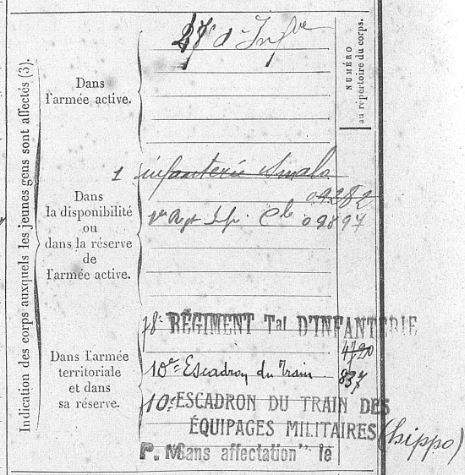 Indication des corps auxquels les jeunes gens sont affectés (3).
NUMÉRO
au répertoire du corps.
Dans
l'armée active.
d'Inf
Dans
la disponibilité
ou
dans la réserve
de
l'armée active.
1 infanterie
Inf. Cle 02897
Dans l'armée
territoriale
et dans
sa réserve.
78e RÉGIMENT Tal D'INFANTERIE
10e Escadron du Train
10e ESCADRON DU TRAIN DES
ÉQUIPAGES MILITAIRES (hippo)
P. M. "Sans affectation" le